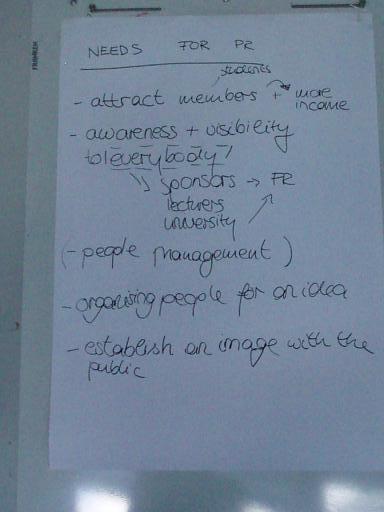 NEEDS FOR PR
students
- attract members + more
income
- awareness + visibility
to everybody
sponsors → FR
lecturers
university
(- people management)
- organising people for an idea
- establish an image with the
public